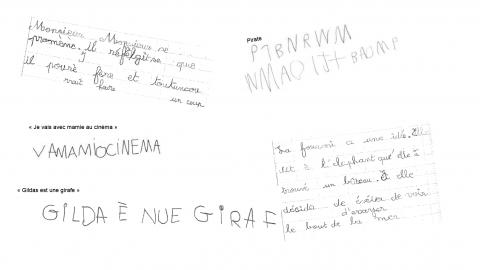 Monsieur Monsieur se
promène. il réflégit se que
il pouré fere et toutuncou
vrait faire un coup
Pirate
PTBNRWM
NMAO IJT BAUMP
« Je vais avec mamie au cinéma »
VAMAMIOCINEMA
« Gildas est une girafe »
GILDA È NUE GIRAF
La fourmi a une idé. Ell
dit à l'elephant qué elle à
trouvé un bateau. Et elle
désida de
d'essayer
le bout de la mer